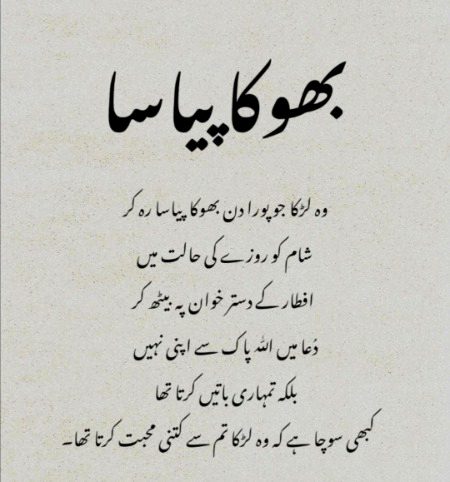 بھوکا پیاسا
وہ لڑکا جو پورا دن بھوکا پیاسا رہ کر
شام کو روزے کی حالت میں
افطار کے دستر خوان پہ بیٹھ کر
دُعا میں اللہ پاک سے اپنی نہیں
بلکہ تمہاری باتیں کرتا تھا
کبھی سوچا ہے کہ وہ لڑکا تم سے کتنی محبت کرتا تھا۔